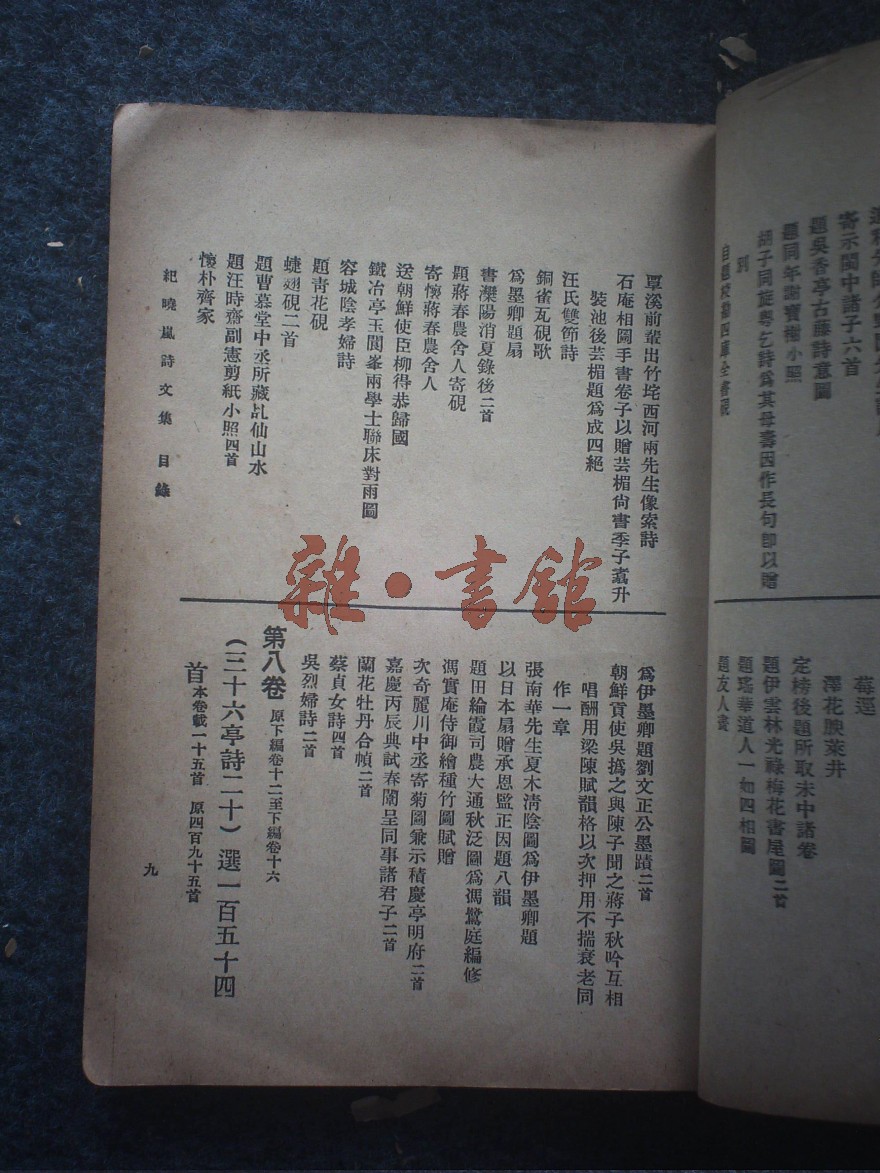 寄示閩中諸子六首
題吳香亭古藤詩意圖
題同年謝寶樹小照
胡子同旋粵乞詩爲其母壽因作長句卽以贈
別
自題校勘四庫全書硯
莓逕
澤花腴菜井
定榜後題所取未中諸卷
題伊雲林光祿梅花書屋圖二首
題瑤華道人一如四相圖
題友人畫
覃溪前輩出竹垞西河兩先生像索詩
石庵相國手書卷子以贈芸楣尙書季子嵩升
裝池後芸楣題爲成四絕
汪氏雙節詩
銅雀瓦硯歌
爲墨卿題扇
書灤陽消夏錄後二首
題蔣春農舍人寄硯
寄懷蔣春農舍人
送朝鮮使臣柳得恭歸國
鐵冶亭玉閬峯兩學士聯床對雨圖
容城陰孝婦詩
題靑花硯
蜨翅硯二首
題曹慕堂中丞所藏乩仙山水
題汪時齋副憲剪紙小照四首
懷朴齊家
紀曉嵐詩文集 目錄
爲伊墨卿題劉文正公墨蹟二首
朝鮮貢使吳撝之與陳子聞之蔣子秋吟互相
唱酬用梁陳賦韻格以次押用不揣衰老同
作一章
張南華先生夏木淸陰圖爲伊墨卿題
以日本扇贈承恩監正因題八韻
題田綸霞司農大通秋泛圖爲馮鷺庭編修
馮實庵侍御繪種竹圖賦贈
次奇麗川中丞寄菊圖兼示積慶亭明府二首
嘉慶丙辰典試春闈呈同事諸君子二首
蘭花牡丹合幀二首
蔡貞女詩四首
吳烈婦詩二首
第八卷 原下編卷十二至下編卷十六
（三十六亭詩二十）選一百五十四
首 本卷載一十五首 原四百九十五首
九
雜·書館